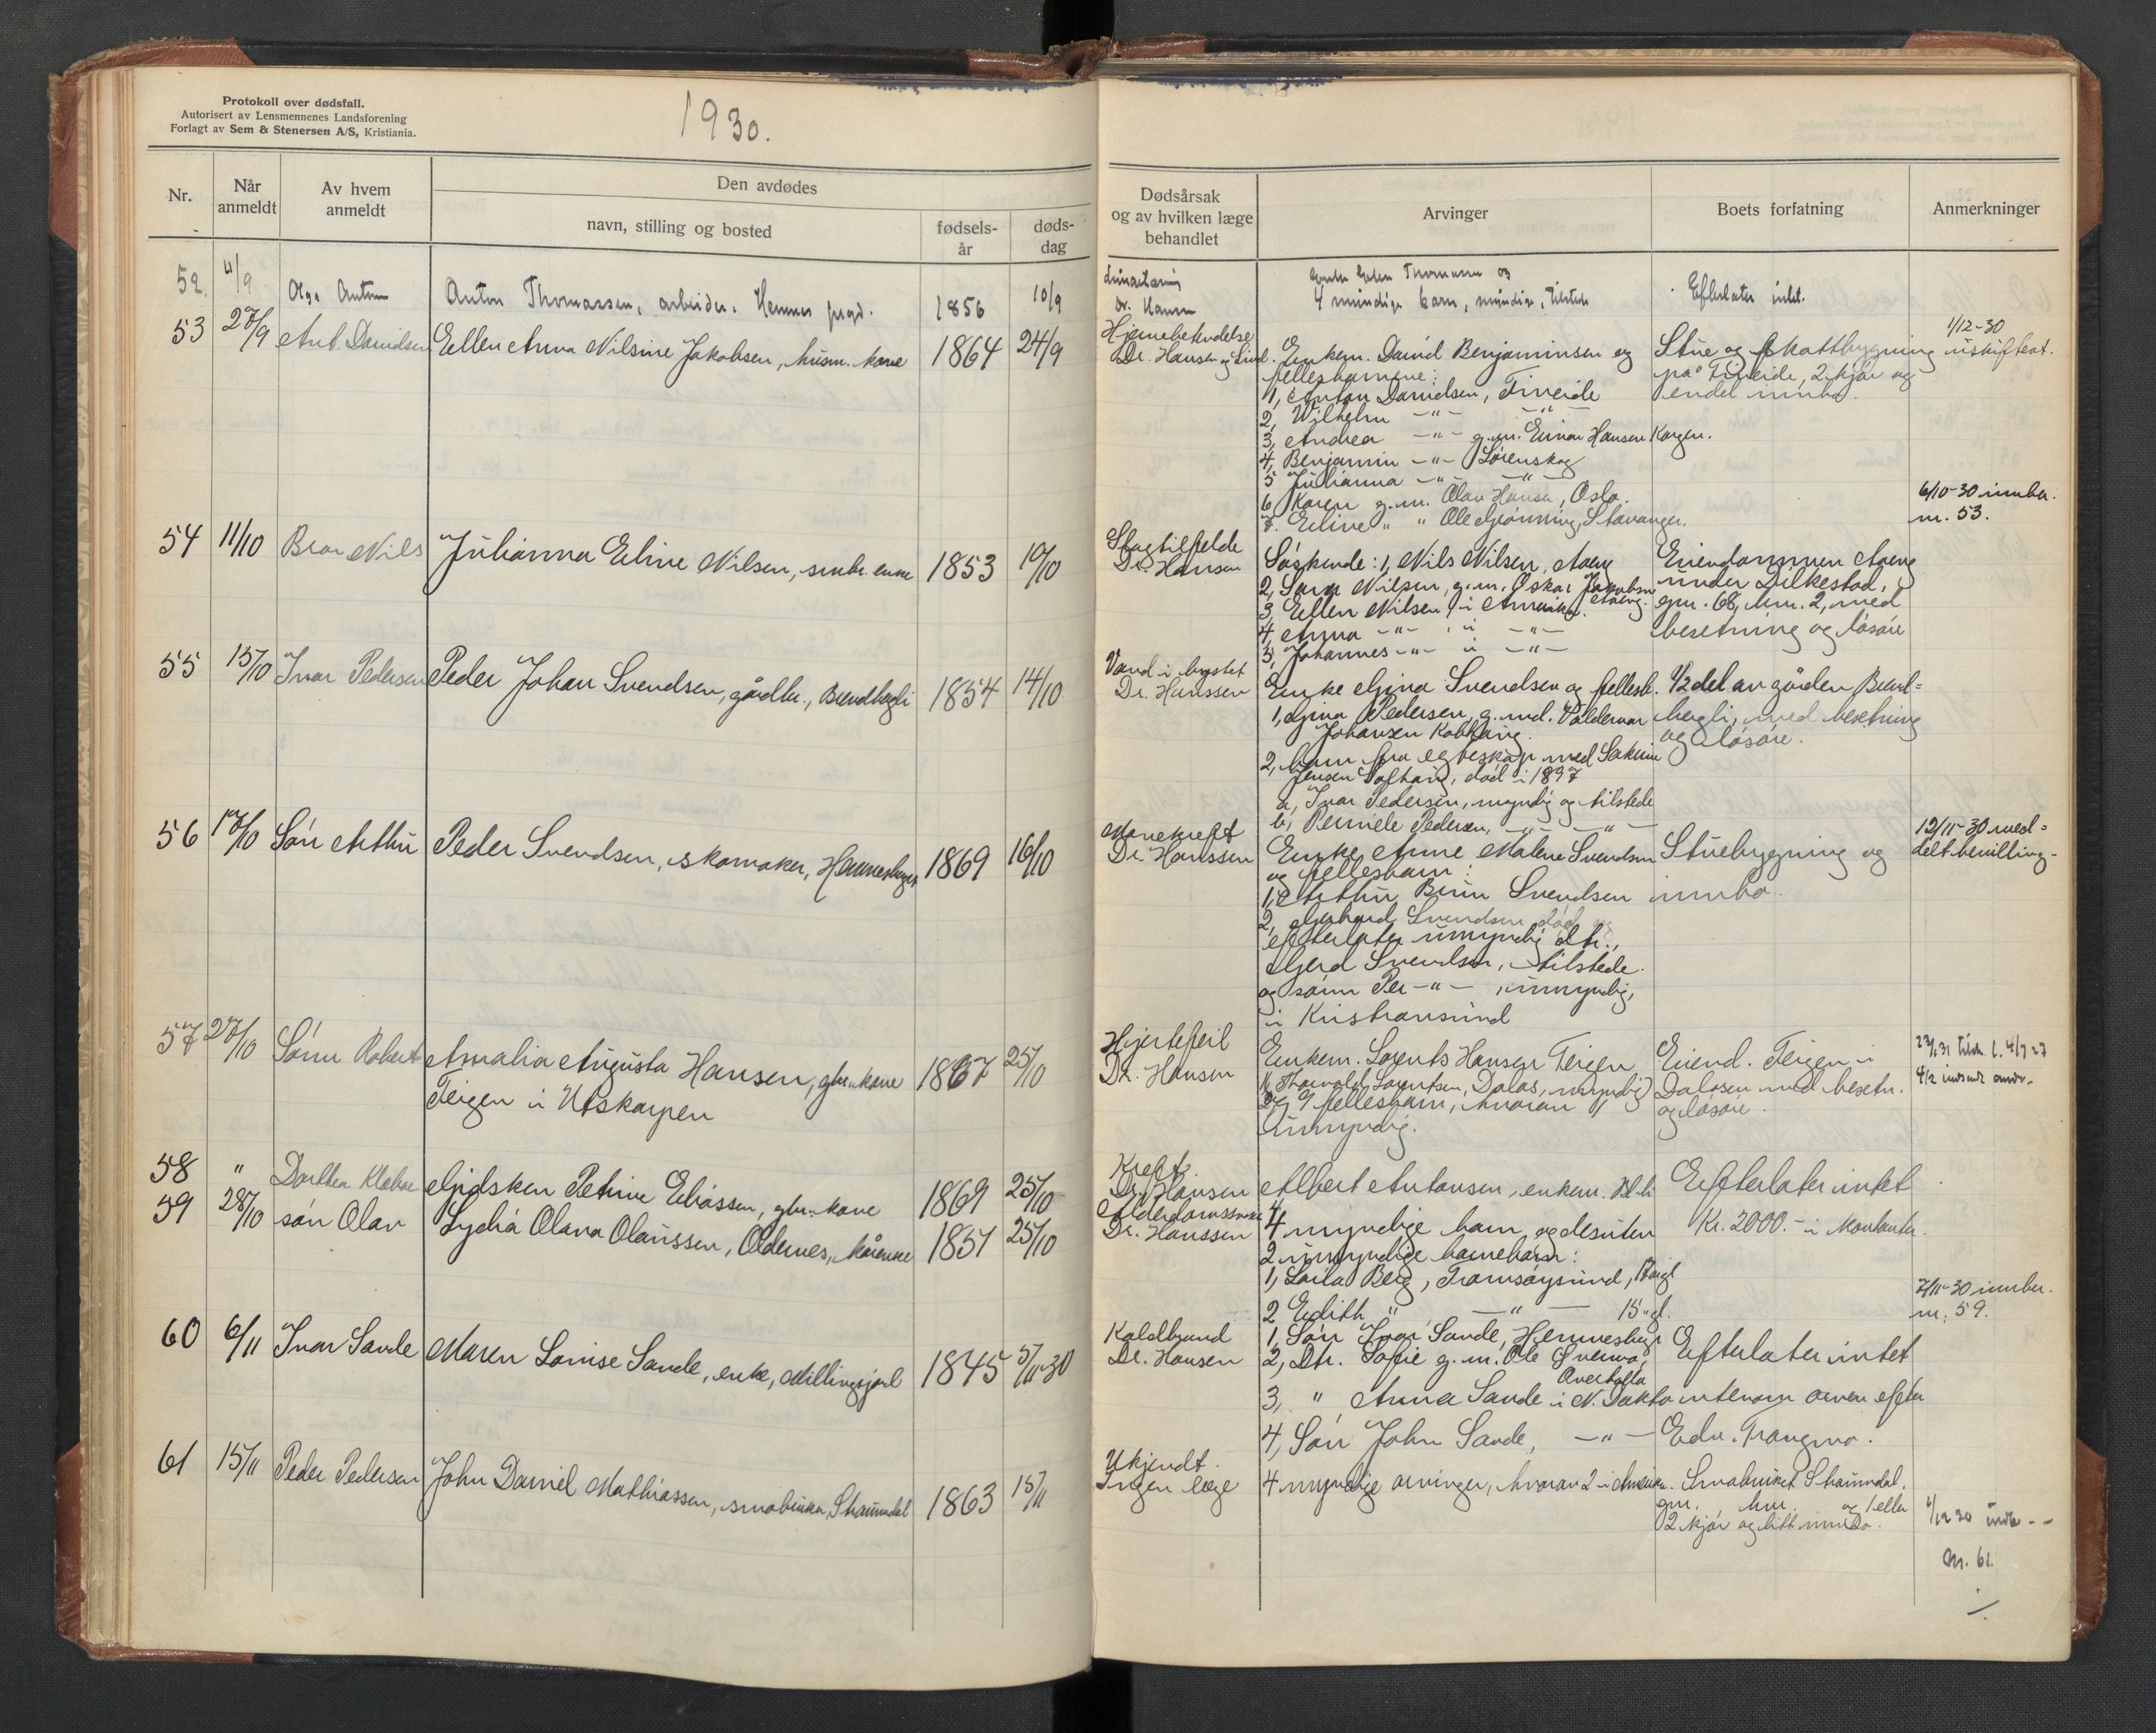 Protokoll over dødsfall.
Autorisert av Lensmennenes Landsforening
Forlagt av Sem & Stenersen A/S, Kristiania.
1930.
Nr.
Når anmeldt
Av hvem anmeldt
Den avdødes
navn, stilling og bosted
fødselsår
dødsdag
Dødsårsak
og av hvilken læge
behandlet
Arvinger
Boets forfatning
Anmerkninger
52. 11/9 Olga Anton Anton Thomassen, arbeider. Hemnes 1856 10/9
Dr. Hansen
4 myndige barn, myndige, tilstede
Efterlater intet.
53 27/9 Ant. Danielsen Ellen Anna Nilsine Jakobsen, husm. kone 1864 24/9
Dr. Hansen og Lind.
Enkem. Daniel Benjaminsen og
fellesbarnene:
1, Anton Danielsen, Fineide
2, Wilhelm -"- -"-
3, Andrea -"- g.m. Einar Hansen Kargen.
4, Benjamin -"- Lørenskog
5 Julianna -"- -"-
6 Karen g.m. Olav Hansen, Oslo.
7. Eline " " Ole Grønning, Stavanger.
Stue og skattbygning
på Fineide, 2 kjør og
endel innbo.
1/12-30
uskiftert.
6/10-30 innber.
nr. 53.
54 11/10 Bror Nils Julianna Eline Nilsen, smbr. enke 1853 10/10
Slagtilfelde
Dr. Hansen
Søskende: 1, Nils Nilsen, Aaeng
2, Sara Nilsen, g.m. Oskar Jakobsen
Aaeng.
3, Ellen Nilsen i Amerika.
4, Anna -"- i -"-
5, Johannes -"- i -"-
Eiendommen Aaeng
under Dilkestad,
gnr. 68, bnr. 2, med
besetning og løsøre
55 15/10 Ivar Pedersen Peder Johan Svendsen, gårdbr., Brendhagli 1854 14/10
Vand i brystet
Dr. Hanssen
Enke Gina Svendsen og fellesb.
1, Gina Pedersen, g. med. Valdemar
Johansen
2, barn fra egteskap med
Jensen, død i 1897
a, Ivar Pedersen, myndig og tilstede
b, Pernele Pedersen, -"- -"-
1/2 del av gården Brend-
hagli, med besetning
og løsøre.
56 17/10 Søn Arthur Peder Svendsen, skomaker, Hemnesberget 1869 16/10
Mavekreft
Dr. Hanssen
Enke Anne Malene Svendsen
og fellesbarn:
1, Arthur Svendsen
2, Gerhard Svendsen død og
efterlater umyndig dtr.,
Gerd Svendsen, tilstede.
og sønn Per -"- , umyndig,
i Kristiansund
Stuebygning og
innbo.
12/11-30 med-
delt bevilling.
57 27/10 Sønn Robert Amalia Augusta Hansen, gbr.kone 1867 25/10
Teigen i Utskarpen
Hjertefeil
Dr. Hansen
Enkem. Lorents Hansen Teigen
1, Thorvald Lorentsen, Dalos, myndig
9 fellesbarn, hvorav
umyndig.
Eiend. Teigen i
Dalosen med besetn.
og løsøre.
58 " Dorthea Gidsken Petrine Eliassen, gbr.kone 1869 25/10
Kreft.
Dr. Hansen
Albert Antonsen, enkem.
Efterlater intet
59 28/10 søn Olav Lydia Olava Olaussen, Oldernes, kårenke 1851 25/10
Dr. Hanssen
4 myndige barn og desuten
2 umyndige barnebarn:
1, Laila Berg, Tromsøysund,
2 Edith " -"- 15 "
Kr. 2000.- i kontanter.
7/11-30 innber.
nr. 59.
60 6/11 Ivar Sande Maren Lovise Sande, enke, Millingsjord 1845 5/11-30
Koldbrand
Dr. Hansen
1, Søn Ivar Sande, Hemnesberget
2, Dtr. Sofie g.m. Ole
3, " Anna Sande i N. Dakota
4, Søn John Sande, -"-
Efterlater intet
utenom arven efter
Edv.
61 15/11 Peder Pedersen John Daniel Mathiassen, småbruker, Straumdal 1863 15/11
Ukjendt.
Ingen læge
4 myndige arvinger, hvorav 2 i Amerika.
Småbruket Straumdal,
gnr. , bnr. og 1 eller
2 kjør og litt innbo.
nr. 61.